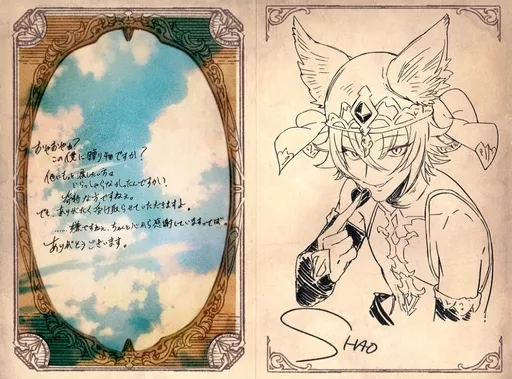 おやおやぁ?
この僕に贈り物ですか?
他にもっと渡したい方は
いらっしゃらなかったんですかい?
奇特な方ですねぇ。
でも、ありがたく受け取らせていただきますよ。
……嫌ですねぇ、ちゃんと心から感謝していますってば。
ありがとうございます。
SHAO